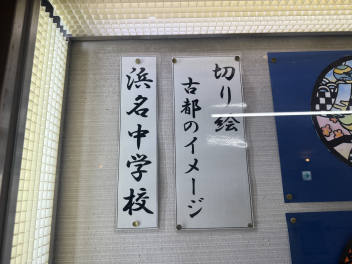 切り絵
古都のイメージ
浜名中学校